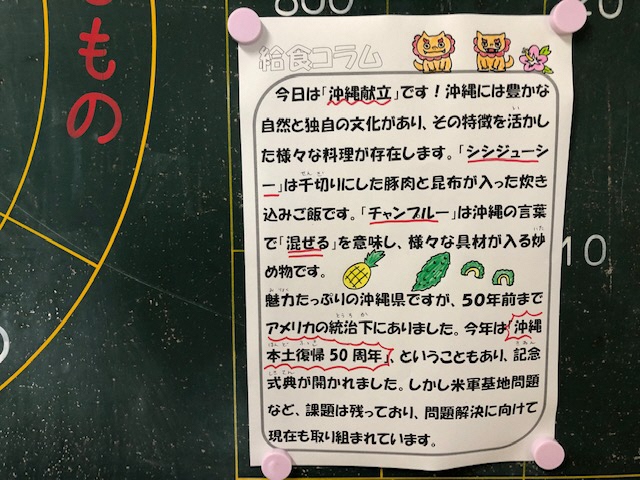 800
20
もの
給食コラム
今日は「沖縄献立」です！沖縄には豊かな
自然と独自の文化があり、その特徴を活かし
た様々な料理が存在します。「シシジューシ
ー」は千切りにした豚肉と昆布が入った炊き
込みご飯です。「チャンプルー」は沖縄の言葉
で「混ぜる」を意味し、様々な具材が入る炒
め物です。
魅力たっぷりの沖縄県ですが、50年前まで
アメリカの統治下にありました。今年は「沖縄
本土復帰50周年」、ということもあり、記念
式典が開かれました。しかし米軍基地問題
など、課題は残っており、問題解決に向けて
現在も取り組まれています。
10
0